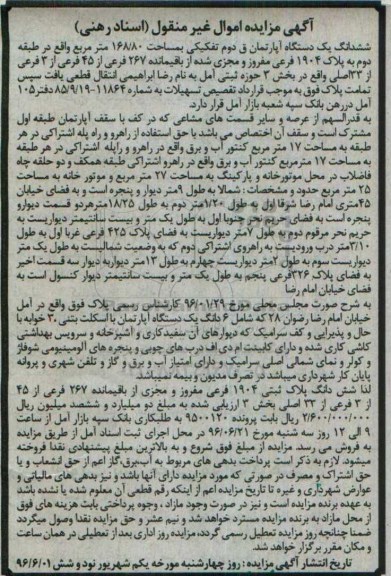 آگهی مزایده اموال غیر منقول (اسناد رهنی)
ششدانگ یک دستگاه آپارتمان ق دوم تفکیکی بمساحت ۱۶۸/۸۰ متر مربع واقع در طبقه
دوم به پلاک ۱۹۰۴ فرعی مفروز و مجزی شده از باقیمانده ۲۶۷ فرعی از ۴۵ فرعی از ۳ فرعی
از ۳۳ اصلی واقع در بخش ۳ حوزه ثبتی آمل به نام رضا ابراهیمی انتقال قطعی یافت سپس
تمامت پلاک فوق به موجب قرارداد تقصیص تسهیلات به شماره ۱۱۸۶۴-۸۵/۹/۱۹ دفتر ۱۰۵
آمل در رهن بانک سپه شعبه بازار آمل قرار دارد.
به قدرالسهم از عرصه و سایر قسمت های مشاعی که در کف با سقف آپارتمان طبقه اول
مشترک است و سقف آن اختصاص می باشد با حق استفاده از راهرو و راه پله اشتراکی در هر
طبقه به مساحت ۱۷ متر مربع کنتور آب و برق واقع در راهرو و راپله اشتراکی در هر طبقه
به مساحت ۱۷ مترمربع کنتور آب و برق واقع در راهرو اشتراکی طبقه همکف و دو حلقه چاه
فاضلاب در محل موتورخانه و پارکینگ به مساحت ۲۷ متر مربع و موتور خانه به مساحت
۲۵ متر مربع حدود و مشخصات : شمالا به طول ۹ متر دیوار و پنجره است و به فضای خیابان
۴۵ متری امام رضا شرقا اول به طول ۱/۲۰ متر دوم به طول ۱۸/۲۵ متر هر دو قسمت دیوارو
پنجره است به فضای حریم نحر جنوبا اول به طول یک متر و بیست سانتیمتر دیواریست به
حریم نحر مرقوم دوم به طول ۷ متر دیواریست به فضای پلاک ۴۲۵ فرعی غربا اول به طول
۳/۱۰ متر درب ورودیست به راهروی اشتراکی دوم که به وضعیت شمالیست به طول یک متر
دیواریست سوم به طول ۲ متر دیواریست چهارم به طول ۱۳ متر دیواربه دیوار سه قسمت اخیر
به فضای پلاک ۳۲۶ فرعی پنجم به طول یک متر و بیست سانتیمتر دیوار کنسول است به
فضای خیابان امام رضا
به شرح صورت مجلس محلی مورخ ۹۶/۰۱/۲۹ کارشناس رسمی پلاک فوق واقع در آمل
خیابان امام رضا رضوان ۲۸ که شامل ۶ دانگ یک دستگاه آپارتمان با اسکلت بتنی ۳۰ خوابه با
حال و پذیرایی و کف سرامیک که دیوار های آن سفیدکاری و آشپزخانه و سرویس بهداشتی
کاشی کاری شده و دارای کابینت ام دی اف درب های چوبی و پنجره های آلومینیومی شوفاژ
و کولر و نمای شمالی اصلی سرامیک و دارای امتیاز آب و برق و گاز و تلفن شهری و پروانه
پایان کار شهرداری میباشد در تصرف مدیون و بیمه نمیباشد.
لذا شش دانگ پلاک ثبتی ۱۹۰۴ فرعی مفروز و مجزی از باقیمانده ۲۶۷ فرعی از ۴۵
از ۳ فرعی از ۳۳ اصلی بخش ۳ ارزیابی شده به مبلغ دو میلیارد و ششصد میلیون ریال
۲/۶۰۰/۰۰۰/۰۰۰ ریال بابت پرونده ۹۵۰۰۱۲۰ به طلبکاری بانک سپه بازار آمل از ساعت
۹ الی ۱۲ روز سه شنبه مورخ ۹۶/۰۶/۲۱ در محل اجرای ثبت اسناد آمل از طریق مزایده
به فروش می رسد. مزایده از مبلغ فوق شروع و به بالاترین مبلغ پیشنهادی نقدا فروخته
میشود. لازم به ذکر است پرداخت بدهی های مربوط به آب،برق،گاز اعم از حق انشعاب و یا
حق اشتراک و مصرف در صورتی که مورد مزایده دارای آنها باشد و نیز بدهی های مالیاتی و
عوارض شهرداری و غیره تا تاریخ مزایده اعم از اینکه رقم قطعی آن معلوم شده یا نشده باشد
به عهده برنده مزایده است و نیز در صورت وجود مازاد ، وجوه پرداختی بابت هزینه های فوق
از محل مازاد به برنده مزایده مسترد خواهد شد و نیم عشر و حق مزایده نقدا وصول میگردد
ضمنا چنانچه روز مزایده تعطیل رسمی گردد، مزایده روز اداری بعد از تعطیلی در همان ساعت
و مکان مقرر برگزار خواهد شد.
تاریخ انتشار آگهی مزایده : روز چهارشنبه مورخه یکم شهریور نود و شش ۹۶/۶/۰۱